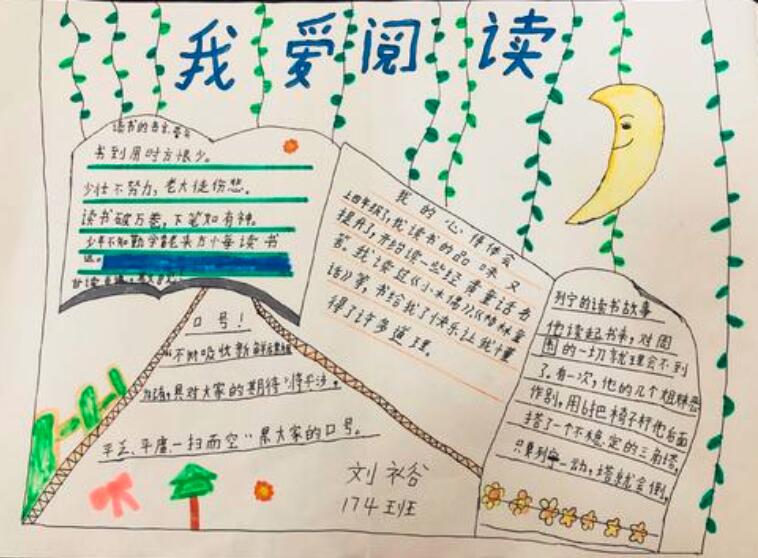 我爱阅读
读书的名言
书到用时方恨少。
少壮不努力,老大徒伤悲。
读书破万卷,下笔如有神。
少年不知勤学早老来方悔读书
迟。
口号!
"不断吸收新
只对大家的期待"将平淡,
平乏、平庸、一扫而空"是大家的口号。
我的心得体会
上四年级了,我读书的品味又
提升了,开始读一些经典童话名
著。我读过《小木偶》《格林童
话》等,书给我了快乐让我懂
得了许多道理。
列宁的读书故事
他读起书来,对周
围的一切就理会不到
了。有一次,他的几个姐妹恶
作剧,用6把椅子在他后面
搭了一个不稳定的三角塔,
只要列宁一动,塔就会倒,
刘
174班